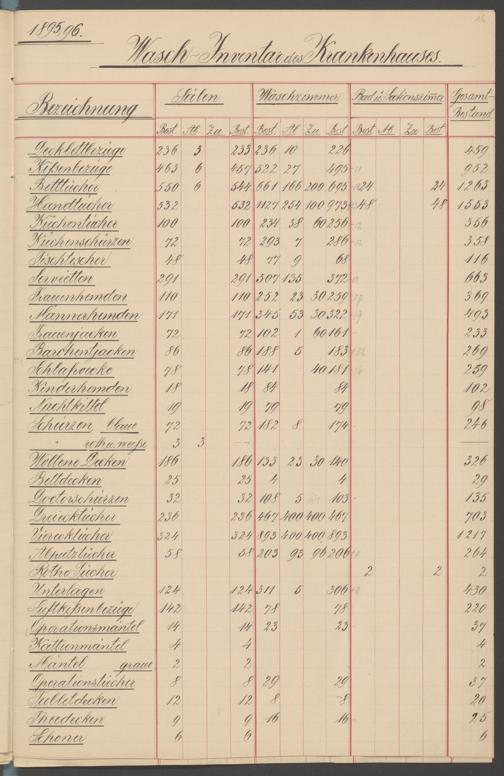 1895/96.
Wasch-Inventar des Krankenhauses.
Bezeichnung Sälen Waschzimmer Bad u. Sektionszimer Gesamt-Bestand
Best. Ab. Zu. Best. Best. Ab. Zu. Best. Best. Ab. Zu. Best.
Deckbettbezüge 236 3 233 236 10 226 459
Kißenbezüge 463 6 457 522 27 495 952
Betttücher 550 6 544 661 166 200 695 24 24 1263
Handtücher 532 532 1127 254 100 973 48 48 1553
Küchentücher 100 100 234 38 60 256 356
Küchenschürzen 72 72 293 7 286 358
Tischtücher 48 48 77 9 68 116
Servietten 291 291 507 135 372 663
Frauenhemden 110 110 252 23 30 259 369
Männerhemden 171 171 345 53 30 322 493
Frauenjacken 72 72 102 1 60 161 233
Barchentjacken 86 86 188 5 183 269
Schlafröcke 78 78 141 40 181 259
Kinderhemden 18 18 84 84 102
Nachtkittel 19 19 79 79 98
Schürzen blaue 72 72 182 8 174 246
" roth u. weiße 3 3 —
Wollene Decken 186 186 133 23 30 140 326
Bettdecken 25 25 4 4 29
Doctorschürzen 32 32 108 5 103 135
Dreiecktücher 236 236 467 400 400 467 703
Vierecktücher 324 324 893 400 400 893 1217
Abputztücher 58 58 203 93 96 206 264
Rothe Tücher 2 2 2
Unterlagen 124 124 311 5 306 430
Luftkißenbezüge 142 142 78 78 220
Operationsmäntel 14 14 23 23 37
Kattunmäntel 4 4 4
Mäntel graue 2 2 2
Operationstücher 8 8 29 29 37
Tabletdecken 12 12 8 8 20
Theedecken 9 9 16 16 25
Schoner 6 6 6